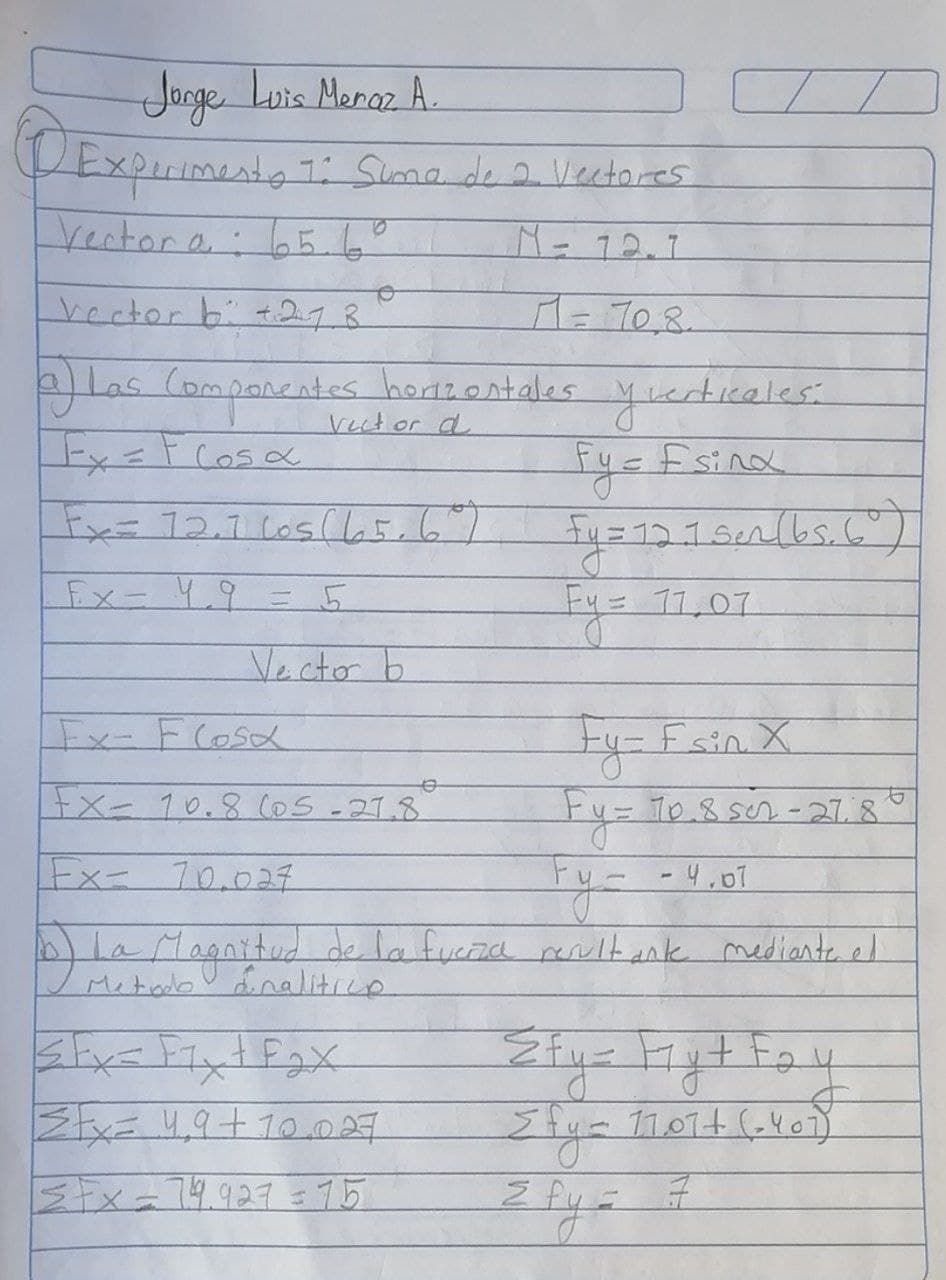 Jorge Luis Menaz A.
① Experimento 1: Suma de 2 Vectores
Vector a: 65.6° M = 12.1
Vector b: -27.8° M = 10.8.
a) Las Componentes horizontales y verticales:
Vector a
Fx = F Cos α Fy = F sin α
Fx = 12.1 Cos(65.6°) Fy = 12.1 sen(65.6°)
Fx = 4.9 = 5 Fy = 11.01
Vector b
Fx = F Cos α Fy = F sin X
Fx = 10.8 Cos -21.8° Fy = 10.8 sen -21.8°
Fx = 10.027 Fy = -4.01
b) La Magnitud de la fuerza resultante mediante el
Metodo analitico
ΣFx = F1x + F2x Σfy = F1y + F2y
ΣFx = 4,9 + 10.027 Σfy = 11.01 + (-4.01)
ΣFx = 14.927 = 15 Σfy = 7